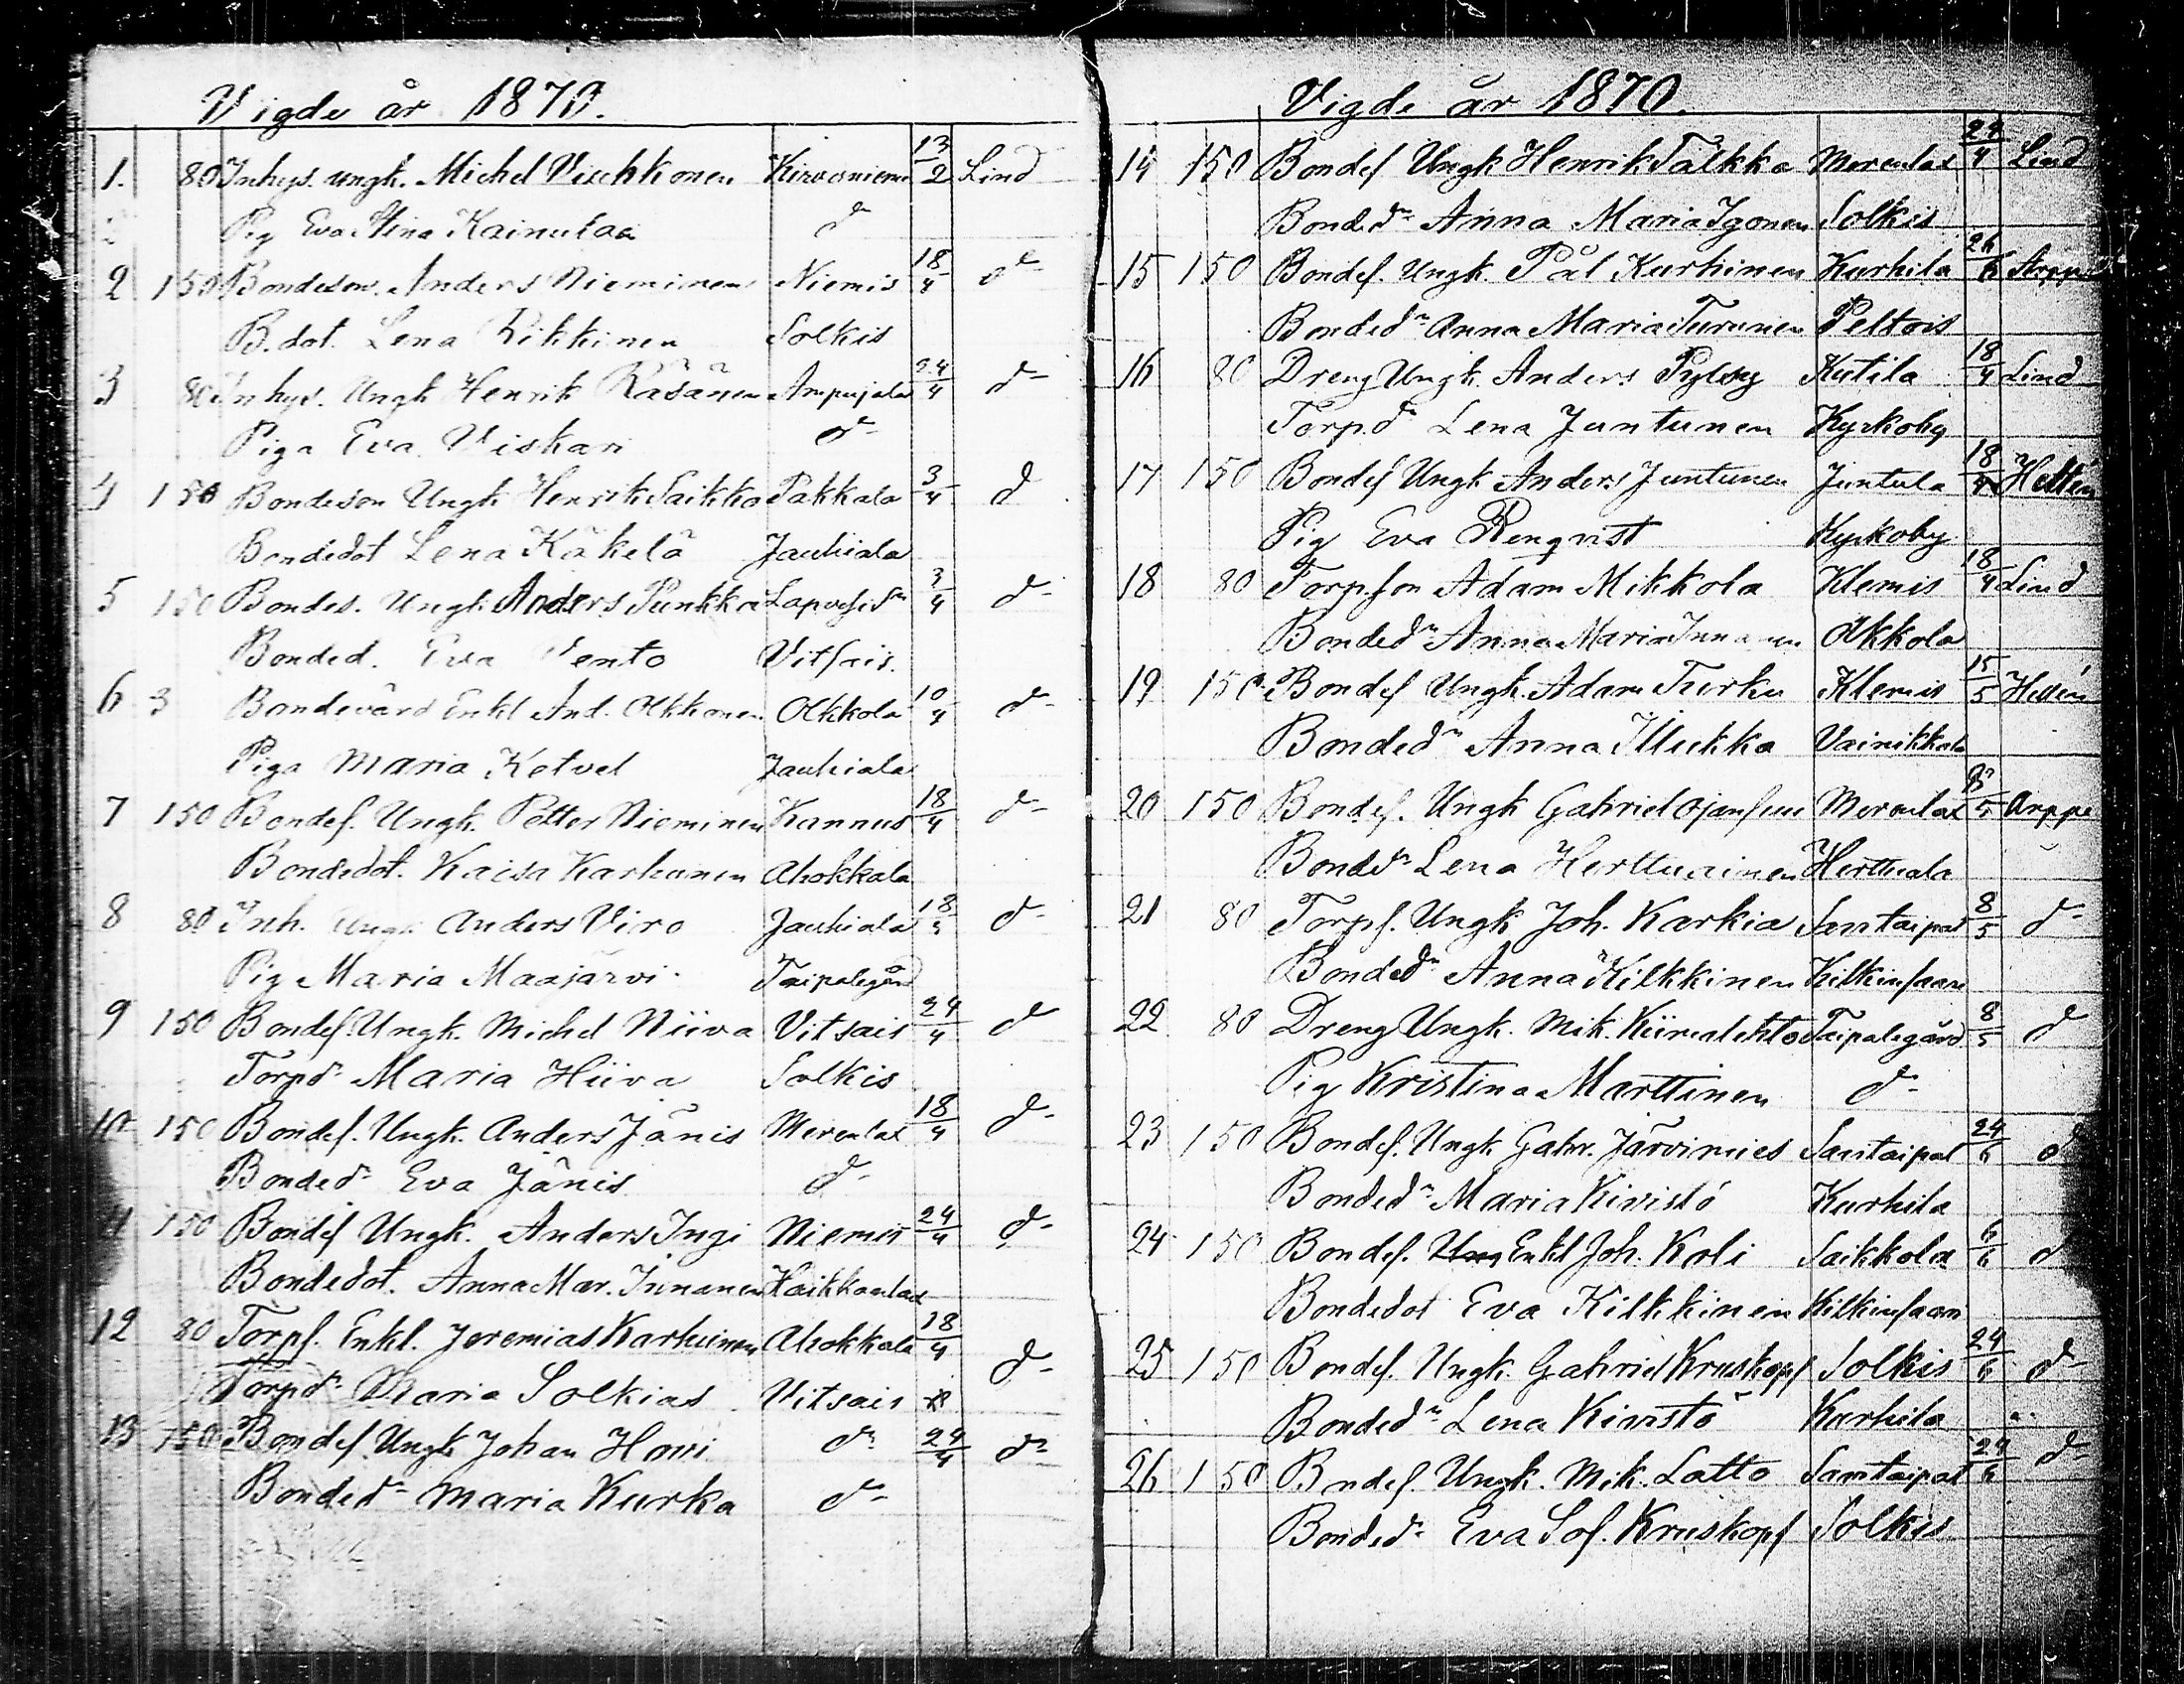 Vigde år 1870.
1. 80 Inhys. ungk. Michel Vischkonen Kirvesniemi 13/2 Lind
Pig Eva Stina Kainulaa do
2 150 Bondeson. Anders Nieminen Niemis 18/4 do
B. dot. Lena Rikkinen Solkis
3 80 Inhys. Ungk Henrik Räsänen Ampujala 24/4 do
Piga Eva Viskari do
4 150 Bondeson Ungk Henrik Saikko Pakkala 3/4 d
Bondedot Lena Käkelä Jauhiala
5 150 Bondes. Ungk Anders Punkka 3/4 do
Bonded. Eva Vento Vitsais.
6 3 Bondevärd Enkl And. Olkkonen Olkkola 10/4 do
Piga Maria Ketvel Jauhiala
7 150 Bondes. Ungk. Petter Nieminen Kannus 18/4 do
Bondedot. Kaisa Karhunen Ahokkala
8 80 Inh. Ungk Anders Viro Jauhiala 18/4 do
Pig Maria Maajärvi. Taipalegård
9 150 Bondes. Ungk. Michel Niiva Vitsais 24/4 do
Torpdr Maria Hiiva Solkis
10 150 Bondes. Ungk. Anders Jänis Merenlax 18/4 do
Bondedr Eva Jänis do
11 150 Bondes Ungk. Anders Ingi Niemis 24/4 do
Bondedot. Anna Mar. Innanen Haikkaalax
12 80 Torps. Enkl. Jeremias Karhunen Ahokkala 18/4 do
Torpdr Maria Solkias Vitsais
13 150 Bondes Ungk Johan Howi do 24/4 do
Bondedr Maria Kurka do
Vigde år 1870.
14 150 Bondes Ungk Henrik Tälkkä Merenlax 24/4 Lind
Bondedr Anna Maria Igonen Solkis
15 150 Bondes. Ungk. Pål Kurhinen Kurhila 26/6 Arppe
Bondedr Anna Maria Turunen Peltois
16 80 Dreng Ungk. Anders Pylsy Kutila 18/4 Lind
Torp.dr Lena Juntunen Kyrkoby
17 150 Bondes Ungk Anders Juntunen Juntula 18/4 Hellén
Pig Eva Renqvist Kyrkoby
18 80 Torpson Adam Mikkola Klemis 18/4 Lind
Bondedr Anna Maria Innanen Olkkola
19 150 Bondes Ungk. Adam Turku Klemis 15/5 Hellén
Bondedr Anna Illukka Vainikkala
20 150 Bondes. Ungk Gabriel Ojansuu Merenlax 8/5 Arppe
Bondedr Lena Herttuainen Herttuala
21 80 Torps. Ungk Joh. Karkia Santaipal 8/5 do
Bondedr Anna Kilkkinen Kilkinsaari
22 80 Dreng Ungk. Mik. Kiimalehto Taipalegård 8/5 do
Pig Kristina Marttinen do
23 150 Bondes. Ungk Gabr. Järvimies Santaipal 24/6 do
Bondedr Maria Kivistö Kurhila
24 150 Bondes. Ung Enkl Joh. Koli Saikkola 6/6 do
Bondedot Eva Kilkkinen Kilkinsaari
25 150 Bondes. Ungk. Gabriel Kruskopf Solkis 24/6 do
Bondedr Lena Kivistö Kurhila
26 150 Bndes. Ungk. Mik. Latto Santaipal 24/6 do
Bondedr Eva Sof. Kruskopf Solkis